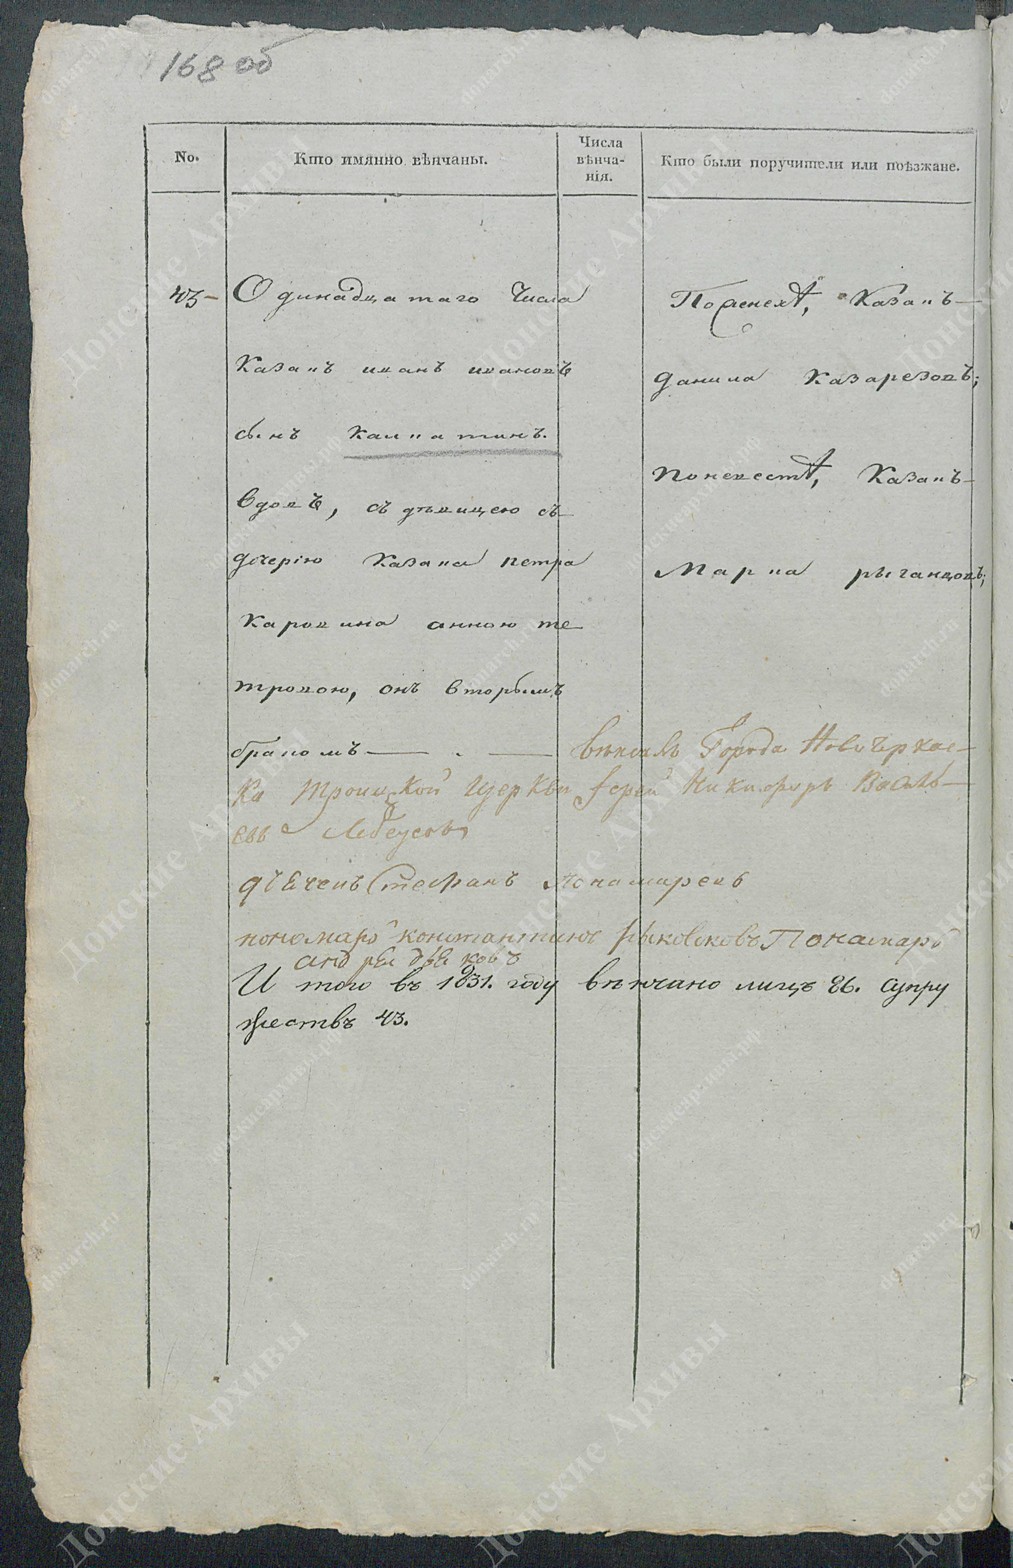 168 об
No.
Кто имянно вѣнчаны.
Числа
вѣнча-
нія.
Кто были поручители или поѣзжане.
43-
Одинадцатаго Числа
Казакъ иванъ ивановъ
сынъ
вдовъ, съ дѣвицею съ
дчерію Казака петра
Каровина анною пе
тровою, онъ вторымъ
бракомъ
По женихѣ, Казакъ
данила Казарезовъ;
по невестѣ, Казакъ
Марка рыганцовъ;
венчалъ Города Новочеркас-
ка Троицкой Церкви Іерей Никифоръ Василь-
евъ
дьячекъ Стефанъ Понамаревъ
пономарь константинъ Понамарь
андрей
И того въ 1831. году венчано лицъ 86. супру
жествъ 43.